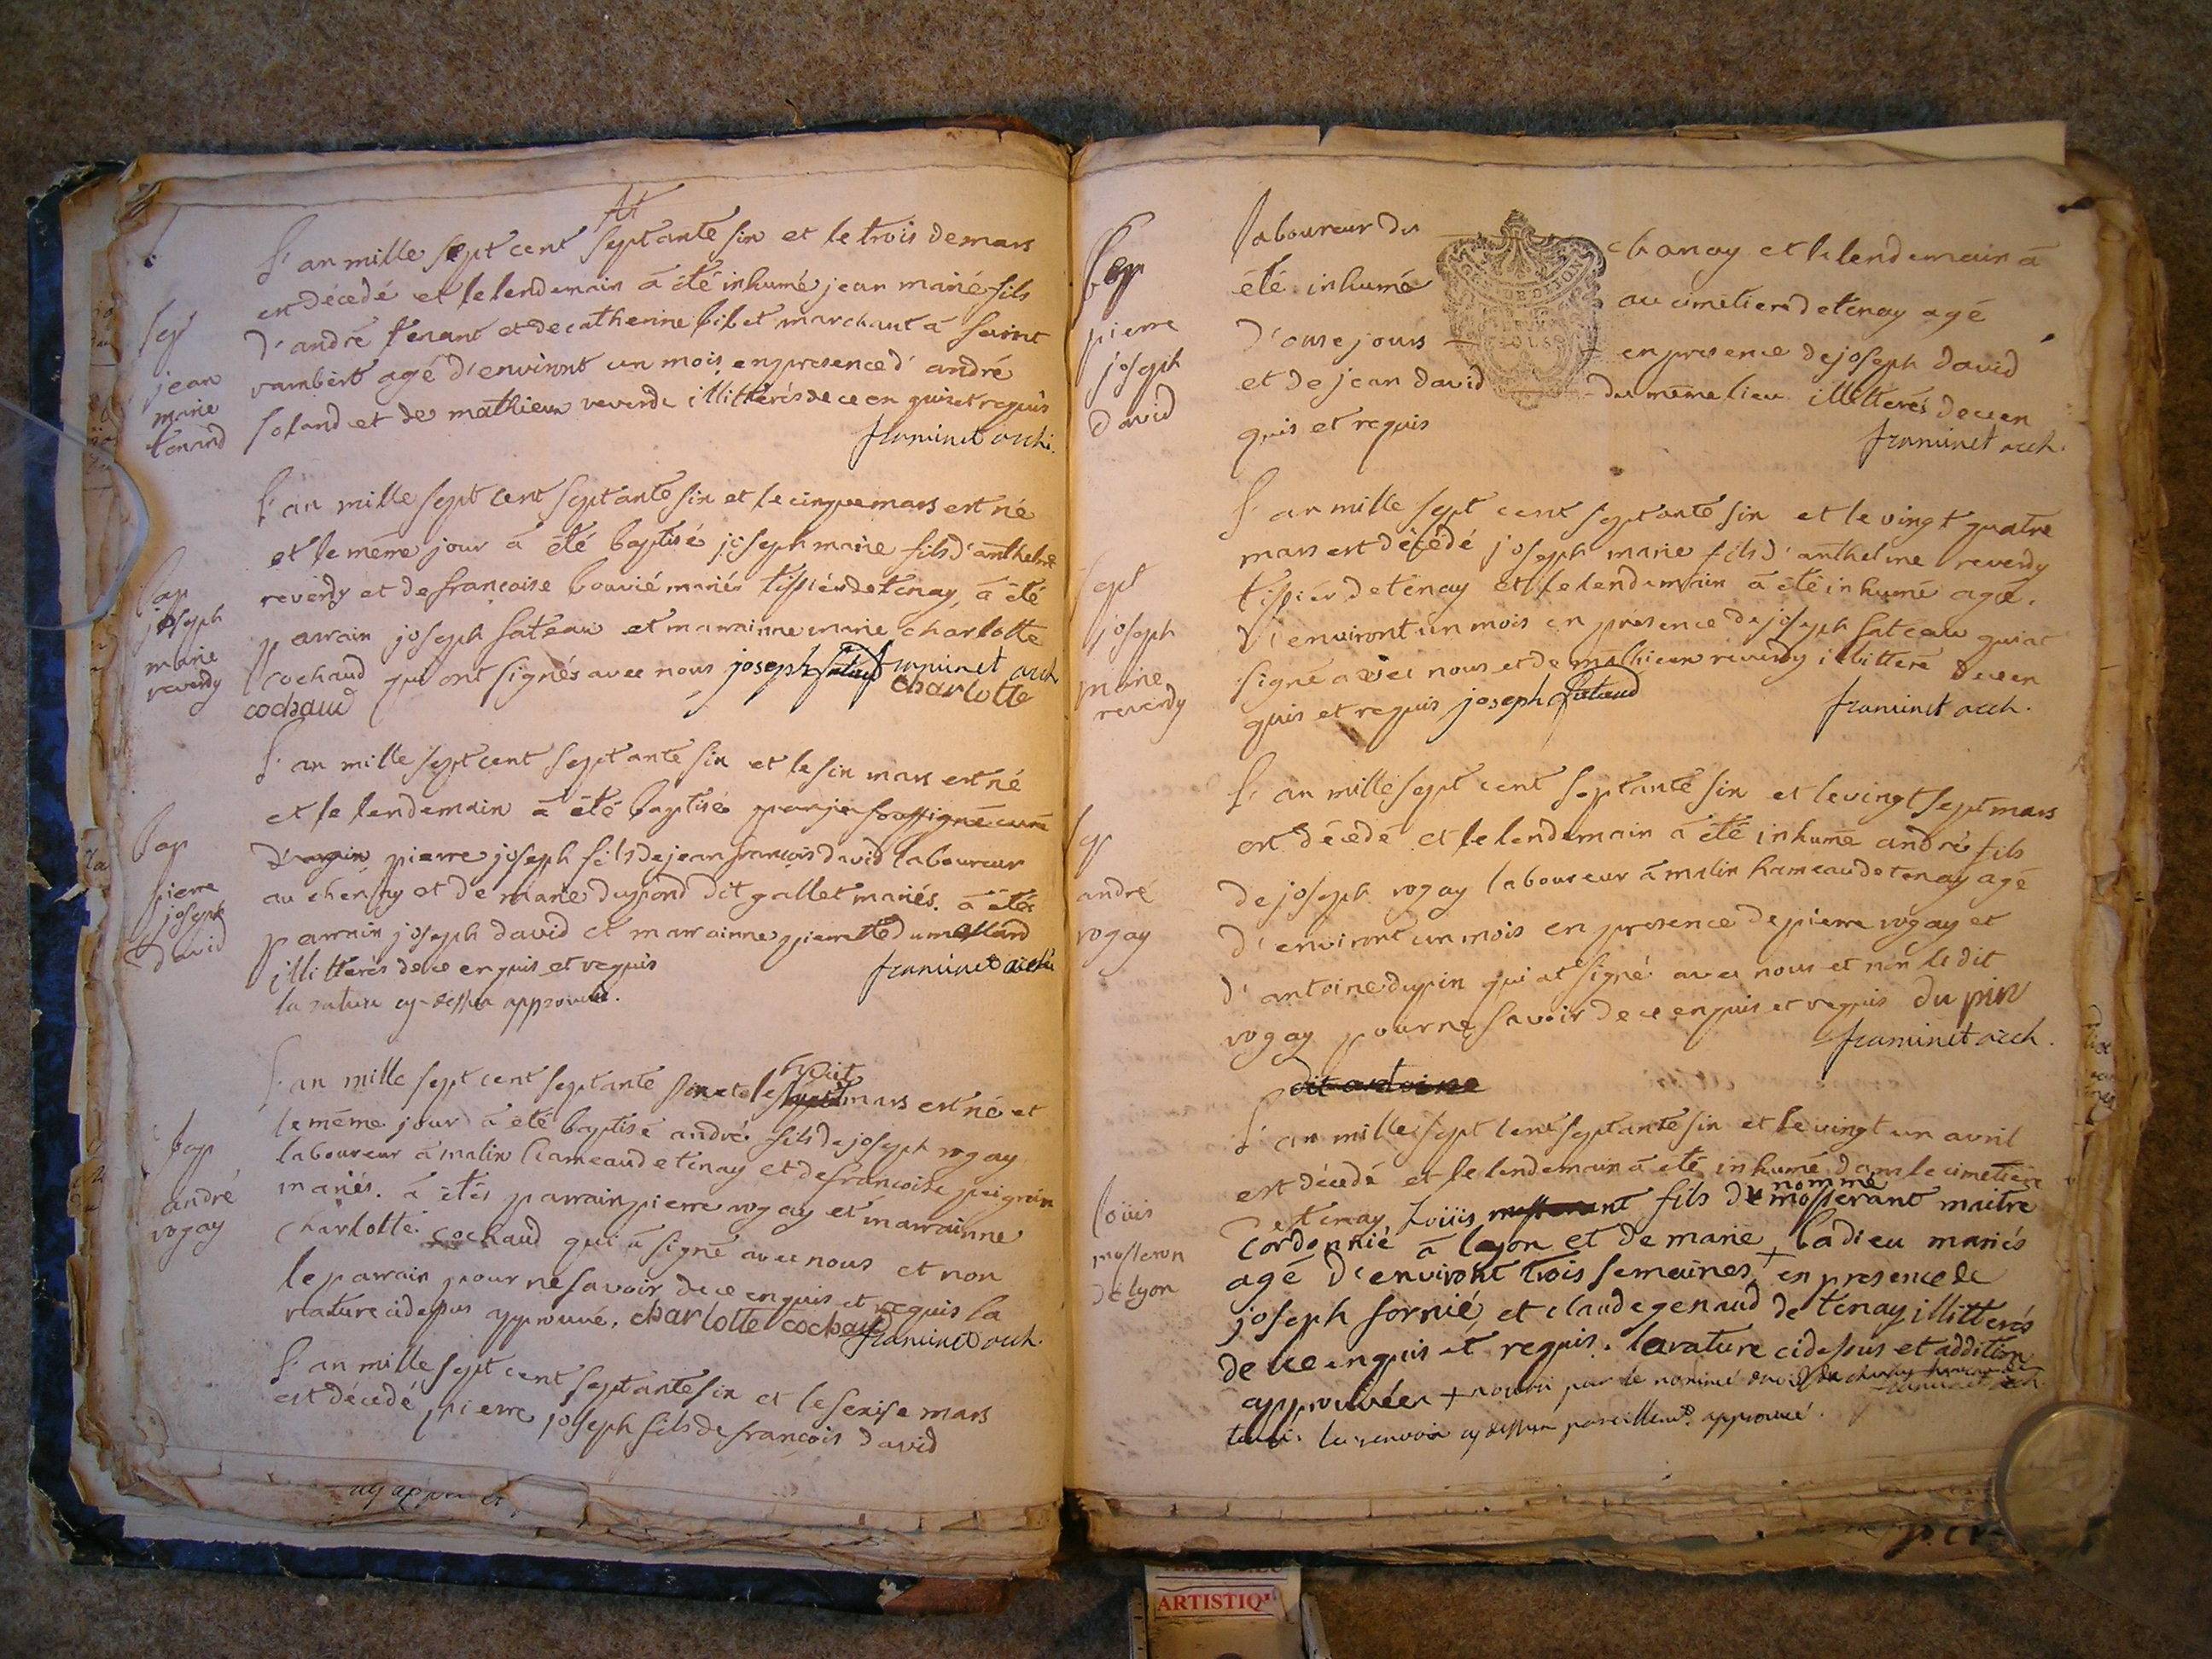 l'an mille sept cent septante six et le trois de mars
est décedé et le lendemain à été inhumé jean marié fils
d'andré tenant et de catherine bibet marchant à saint
rambert agé d'environt un mois en presence d'andré
soland et de mathieu reverdi illitterés de ce enquis et requis
framinet archi.
sep
jean
marie
tenand
l'an mille sept cent septante six et le cinque mars est né
et le même jour à été baptisé joseph marie fils d'anthelme
reverdy et de francoise bouvié mariés tissiér de tenay, à été
parrain joseph sateau et marrainne marie charlotte
cochaud qui ont signés avec nous joseph framinet arch
charlotte
cochaud
bap
joseph
marie
reverdy
l'an mille sept cent septante six et le six mars est né
et le lendemain à été baptisé par je soussigné curé
pierre joseph fils de jean francois david laboureur
au chenay et de marie dupond dit gallet mariés. à étés
parrain joseph david et marrainne pierrette dumollard
illitterés de ce enquis et requis framinet arch
la rature cy-dessus approuvée.
bap
pierre
joseph
david
l'an mille sept cent septante six et le huit mars est né et
le même jour à été baptisé andré fils de joseph rogay
laboureur à malin hameau de tenay et de francoise peigrin
mariés. à étés parrain pierre rogay et marrainne
charlotte cochaud qui à signé avec nous et non
le parrain pour ne savoir de ce enquis et requis la
rature cidessus approuvé. charlotte cochaud
framinet arch.
bap
andré
rogay
l'an mille sept cent septante six et le seize mars
est décedé pierre joseph fils de francois david
laboureur du chanay et le lendemain à
été inhumé au cimetiere de tenay agé
d'onse jours en presence de joseph david
et de jean david du même lieu illitterés de ce en
quis et requis
framinet arch.
sep
pierre
joseph
david
l'an mille sept cent septante six et le vingt quatre
mars est décédé joseph marie fils d'anthelme reverdy
tissiér de tenay et le lendemain à été inhumé agé
d'environt un mois en présence de joseph sateau qui at
signé avec nous et de mathieu reverdy illitteré de ce en
quis et requis joseph
framinet arch.
sept
joseph
marie
reverdy
l'an mille sept cent septante six et le vingt sept mars
est décedé et le lendemain à été inhumé andré fils
de joseph rogay laboureur à malin hameau de tenay agé
d'environt un mois en presence de pierre rogay et
d'antoine dupin qui at signé avec nous et non le dit
rogay pour ne savoir de ce enquis et requis du pin
framinet arch.
dit antoine
sep
andré
rogay
l'an mille sept cent septante six et le vingt un avril
est décedé et le lendemain à été inhumé dans le cimetiere
de tenay Loüis fils de nommé mosserant maitre
cordonnié à lyon et de marie ladieu mariés
agé d'environt trois semaines + en presence de
joseph sornié, et claude genaud de tenay illitterés
de ce enquis et requis. la rature cidessus et addition
approuvées + nourri par le nommé
le renvoi cy dessus pareillemt. approuvé.
loüis
mosseron
de lyon
ARTISTIQ